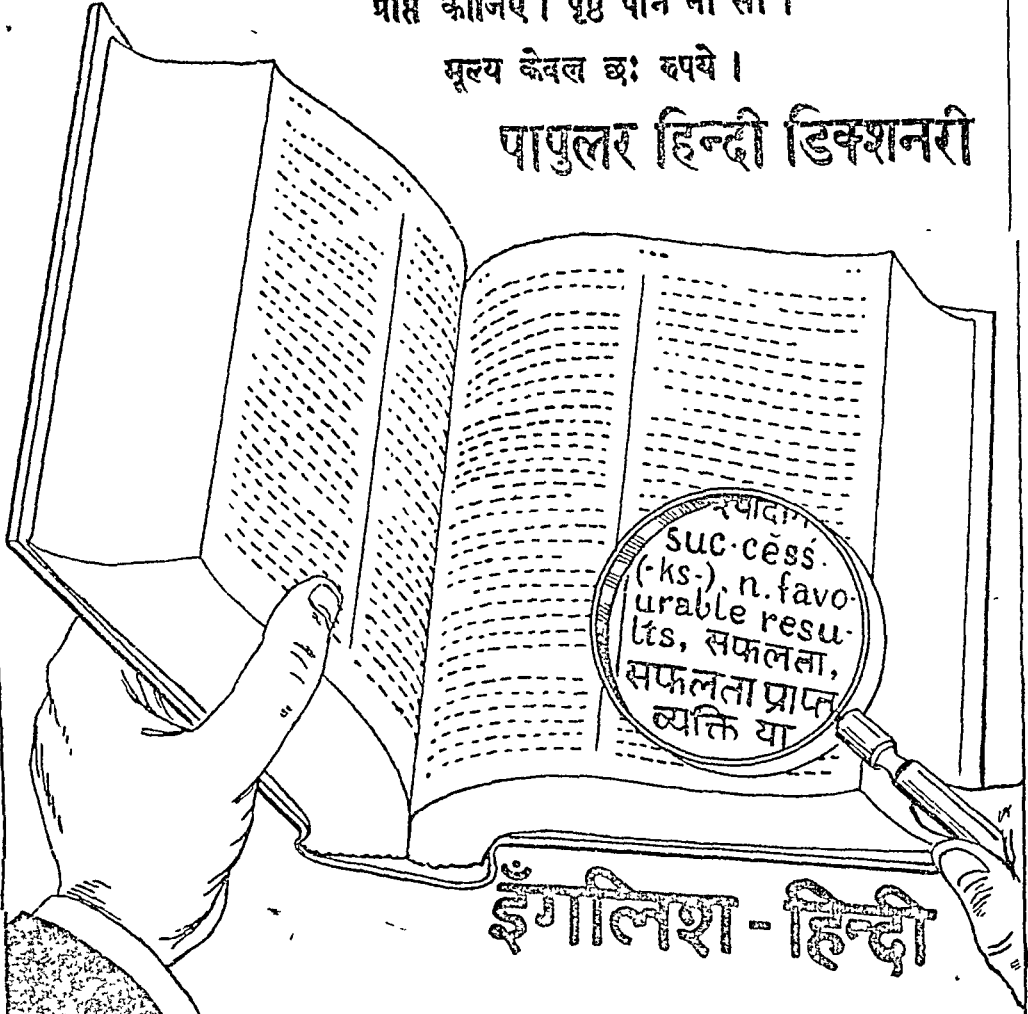 प्राप्त कीजिए। पृष्ठ पौने नौ सौ।
मूल्य केवल छः रुपये।
पापुलर हिन्दी डिक्शनरी
suc·cĕss.
(-ks-), n. favo-
urable resu-
lts, सफलता,
सफलता प्राप्त
व्यक्ति या
इँगलिश - हिन्दी